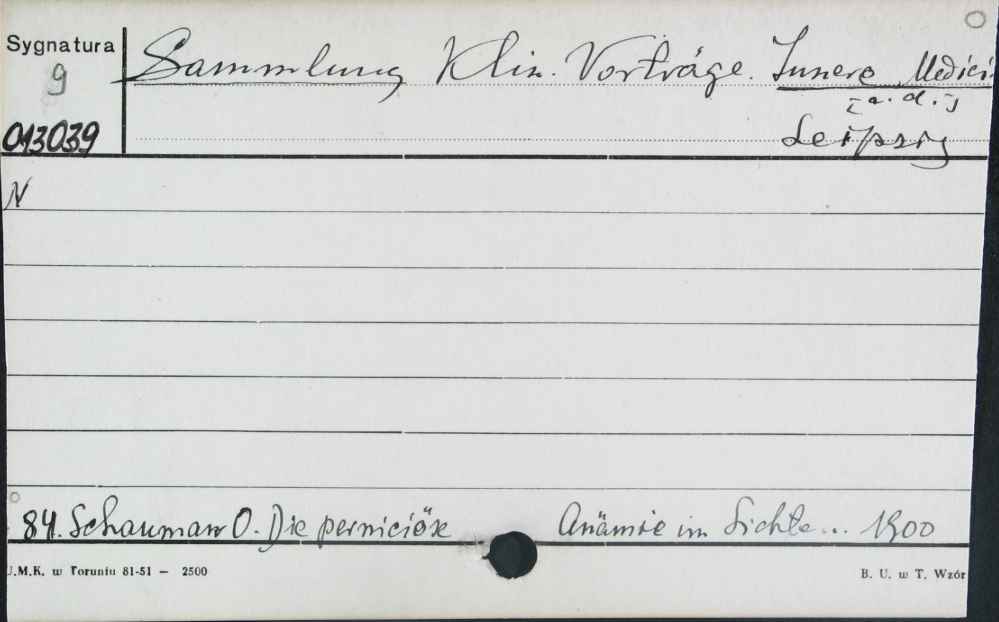 Sygnatura
g Sammlung Klin. Vorträge. Innere Medici
[a. d.]
013039 Leipzig
N
84. Schauman O. Die perniciöse Anämie im Lichte... 1900
U.M.K. w Toruniu 81-51 — 2500 B. U. w T. Wzór